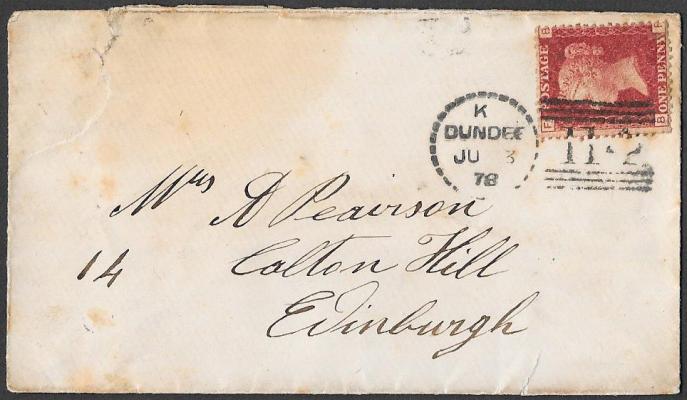 B F
POSTAGE
ONE PENNY
F B
K
DUNDEE
JU 3
78
114·2
Mrs A Peairson
14 Calton Hill
Edinburgh